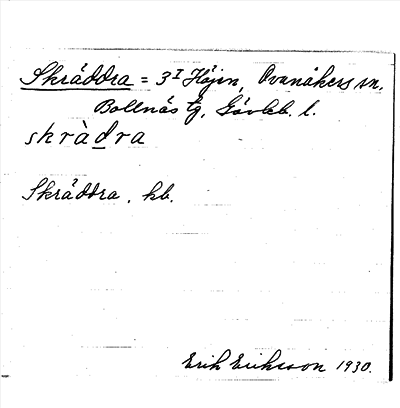 Skräddra = 3^I Höjen, Ovanåkers sn,
Bollnäs tg, Gävleb. l.
skràdra
Skräddra, kb.
Erik Eriksson 1930.